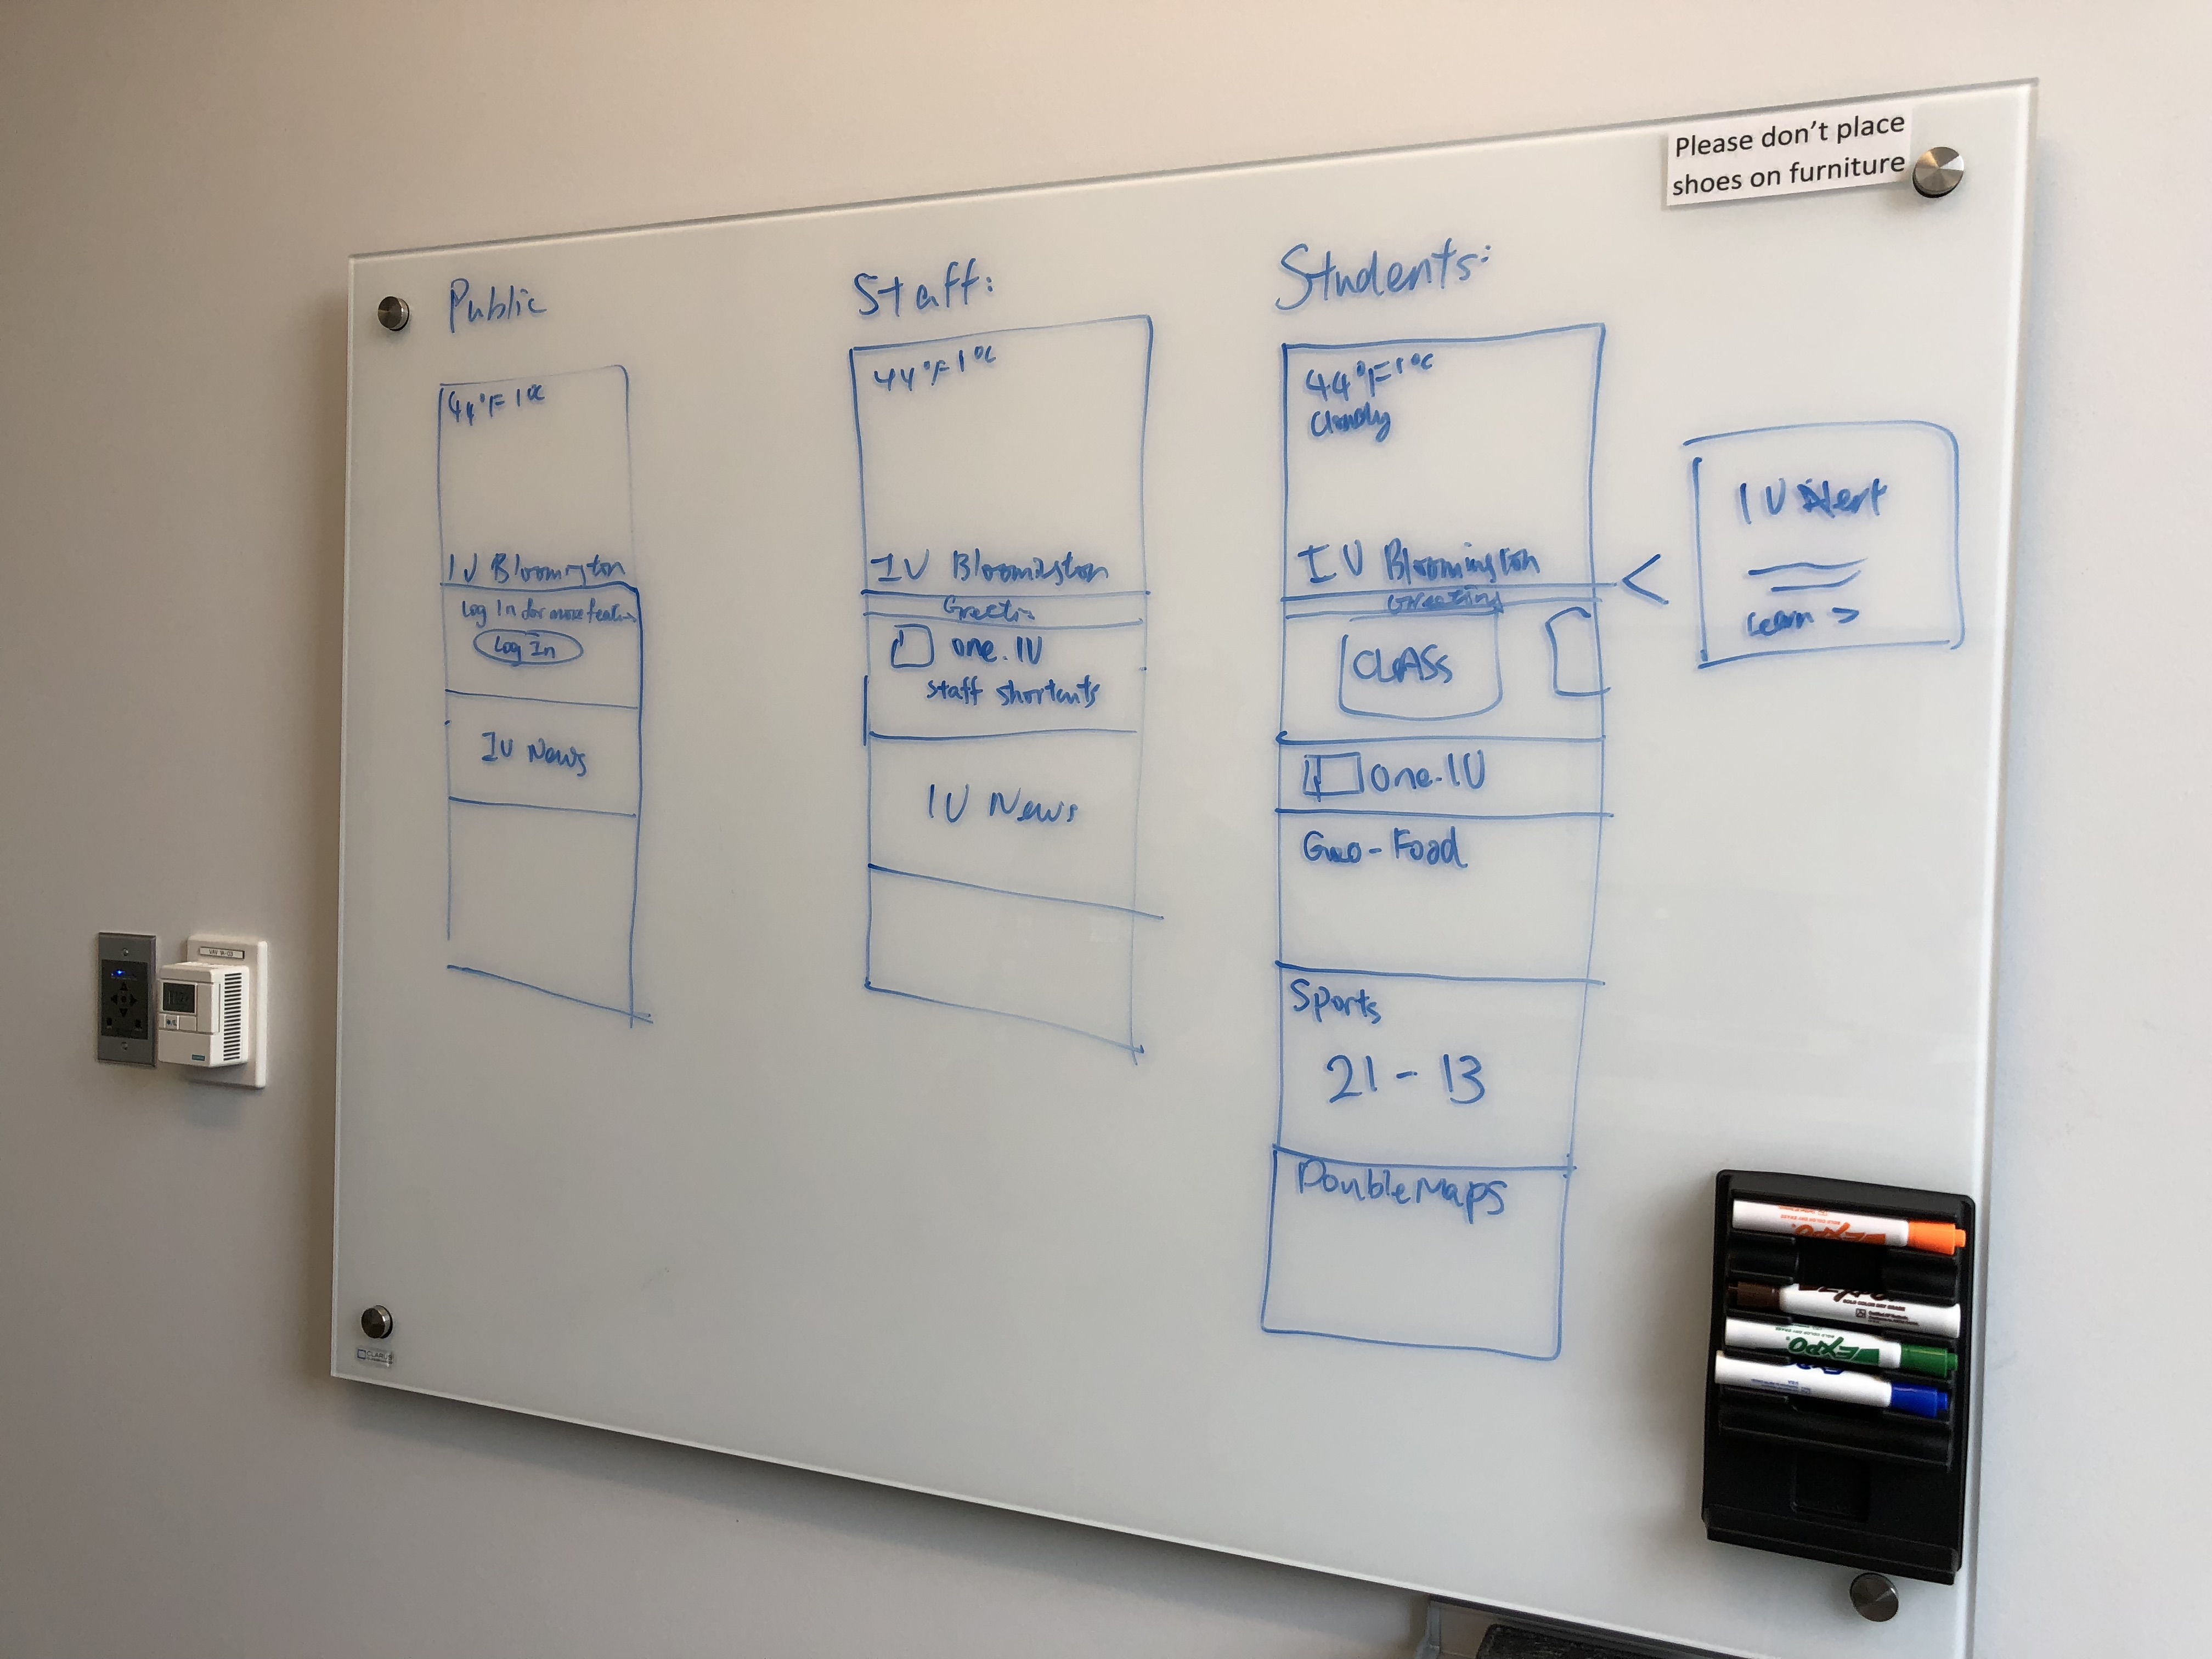 Please don't place
shoes on furniture
Public
44°F 1°C
IU Bloomington
Log In for more
Log In
IU News
Staff:
44°F 1°C
IU Bloomington
one.IU
staff shortcuts
IU News
Students:
44°F 1°C
Cloudy
IU Bloomington
Greeting
CLASS
One.IU
Food
Sports
21 - 13
DoubleMaps
IU Alert
Learn >
EXPO
EXPO
EXPO